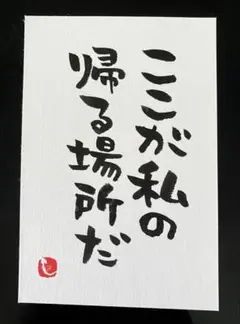 ここが私の
帰る場所だ